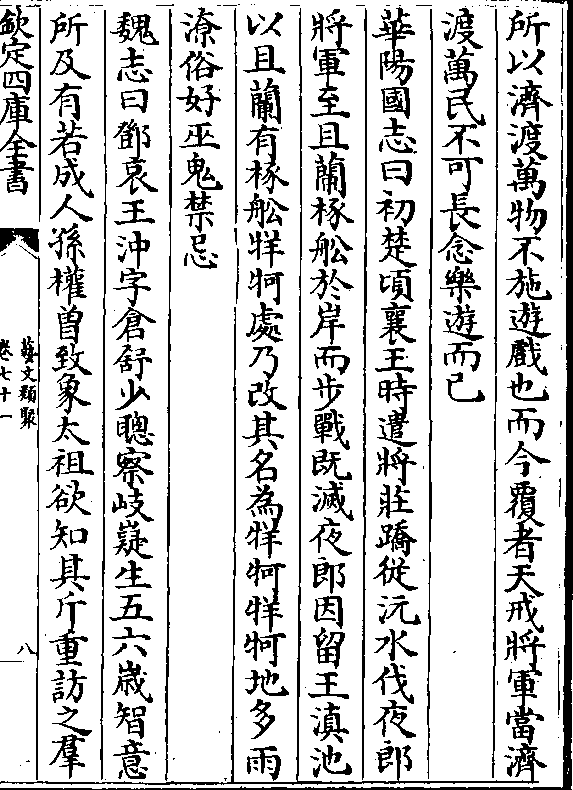 所以濟渡萬物不施遊戲也而今覆者天戒將軍當濟
渡萬民不可長念樂遊而已
華陽國志曰初楚頃襄王時遣將莊蹻從沅水伐夜郎
將軍至且蘭椓舩於岸而步戰既滅夜郎因留王滇池
以且蘭有椓舩牂牁處乃改其名為牂牁牂牁地多雨
潦俗好巫鬼禁忌
魏志曰鄧哀王沖字倉舒少聰察岐嶷生五六歲智意
所及有若成人孫權曾致象太祖欲知其斤重訪之羣
欽定四庫全書
藝文類聚
卷七十一
八